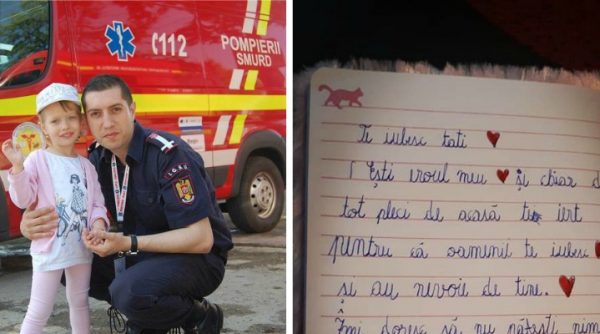 112
POMPIERII
SMURD
Te iubesc tati
Ești eroul meu și chiar
tot pleci de acasă te iert
pentru că oamenii te iubesc
și au nevoie de tine.
Îmi doresc să nu pățești nim